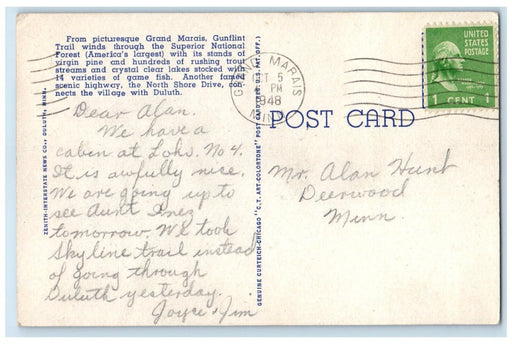 From picturesque Grand Marais, Gunflint
Trail winds through the Superior National
Forest (America's largest) with its stands of
virgin pine and hundreds of rushing trout
streams and crystal clear lakes stocked with
14 varieties of game fish. Another famed
scenic highway, the North Shore Drive, con-
nects the village with Duluth.
ZENITH-INTERSTATE NEWS CO., DULUTH, MINN.
Dear Alan.
We have a
cabin at No 4.
It is awfully nice.
We are going up to
see Aunt Inez
tomorrow. We took
Skyline trail instead
of going through
Duluth yesterday.
Joyce + Jim
GENUINE CURTEICH-CHICAGO "C.T. ART-COLORTONE" POST CARD (REG. U.S. PAT. OFF.)
GRAND MARAIS
5
PM
1948
MINN.
UNITED
STATES
POSTAGE
1 CENT 1
POST CARD
Mr. Alan Hunt
Deerwood
Minn.